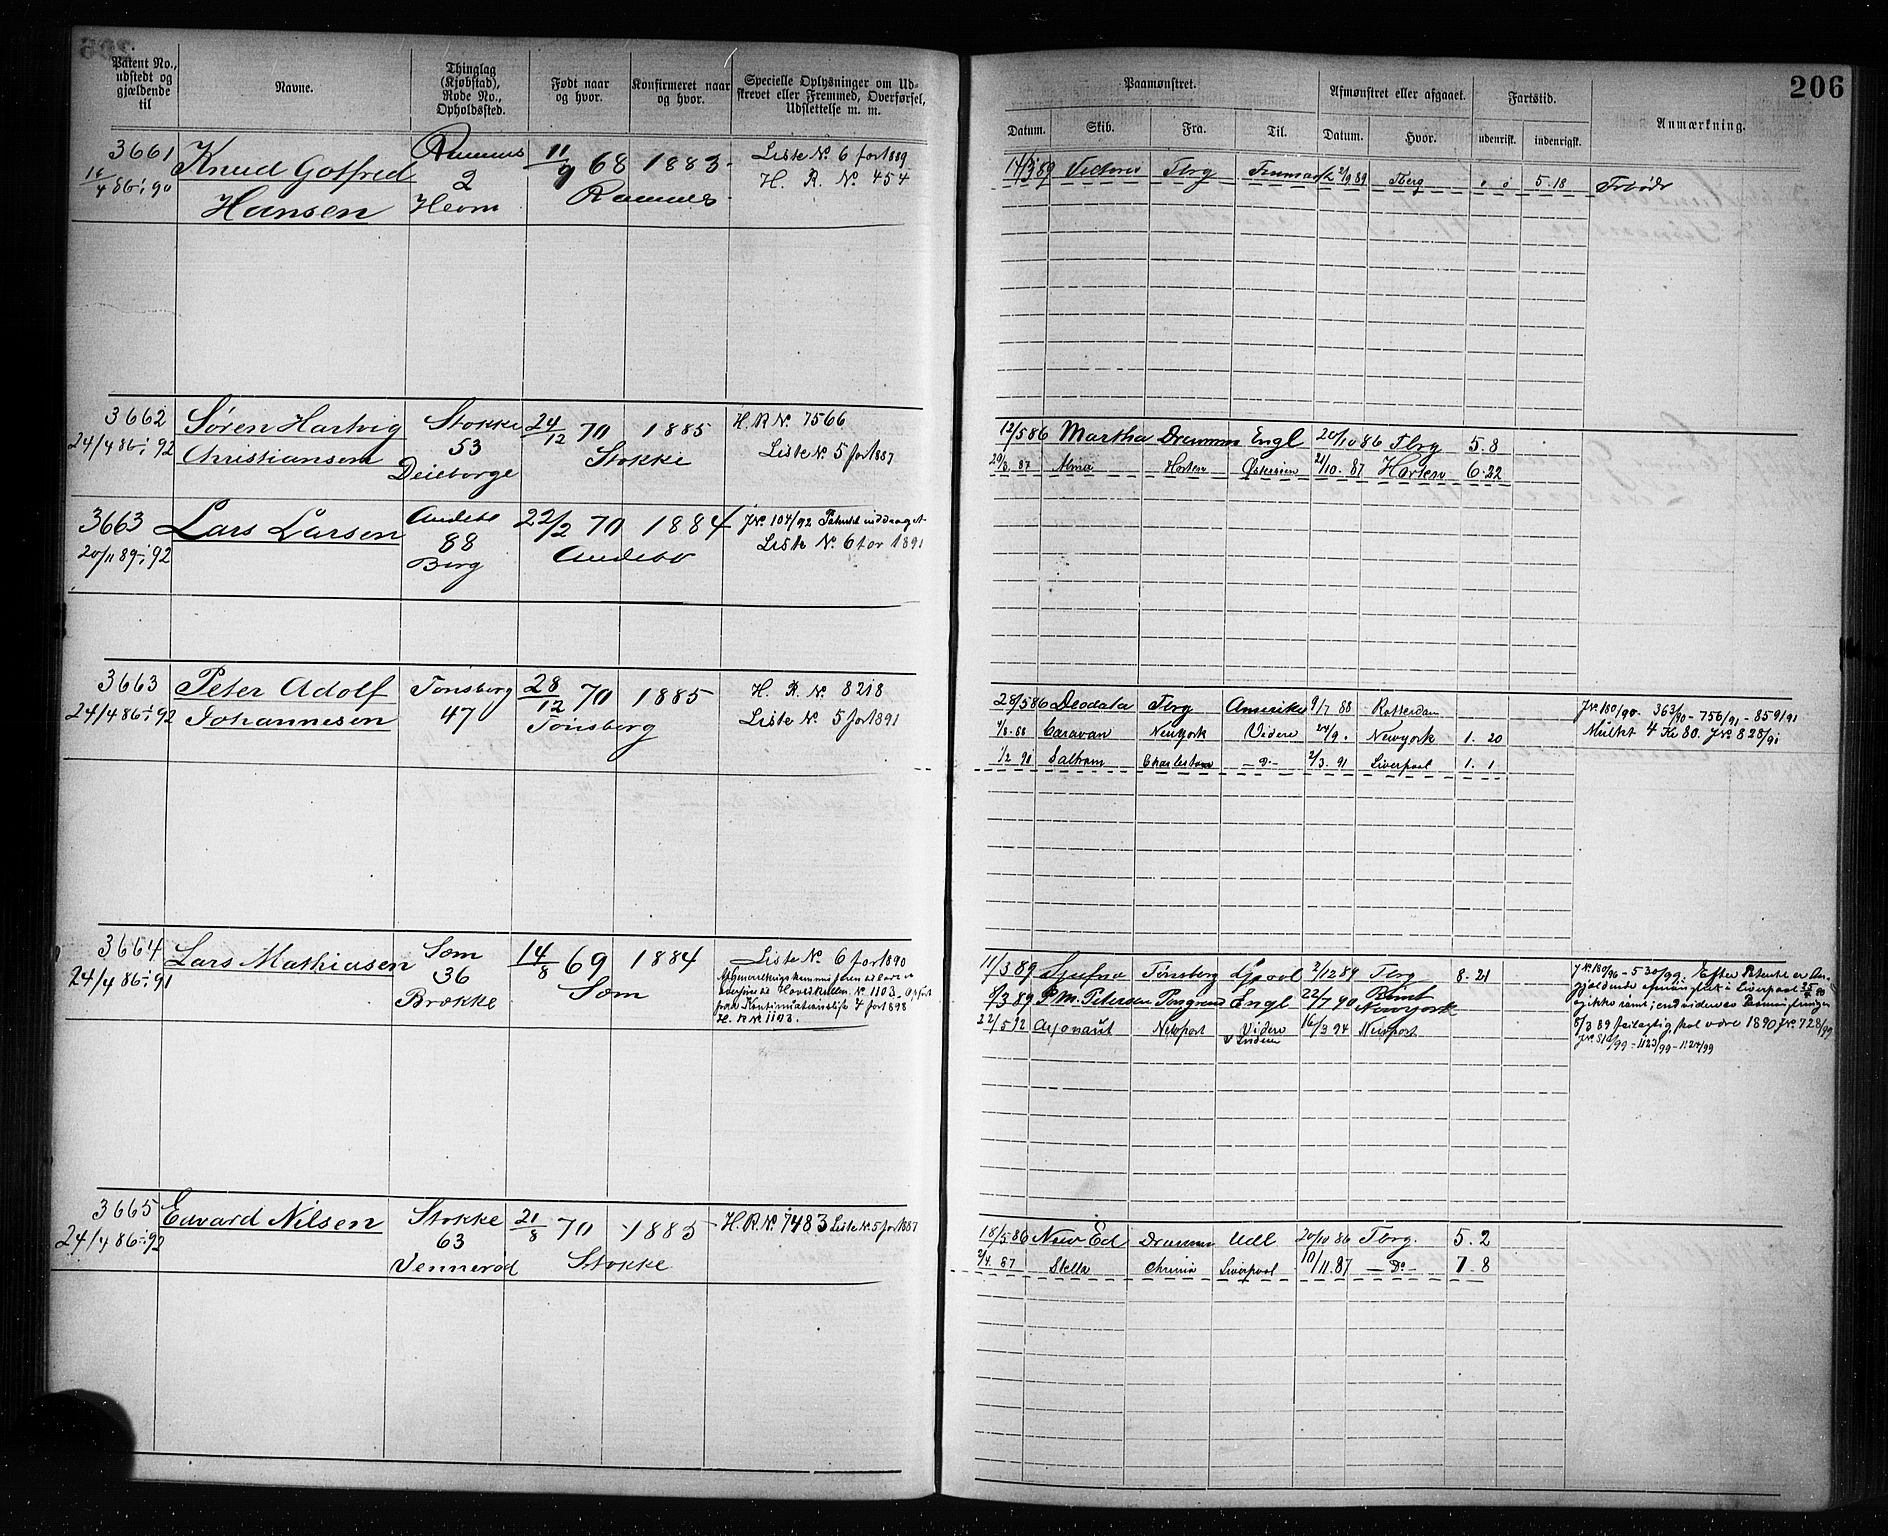 206
Patent No., udstedt og gjældende til
Navne.
Thinglag (Kjøbstad), Rode No., Opholdssted.
Født naar og hvor.
Konfirmeret naar og hvor.
Specielle Oplysninger om Udskrevet eller Fremmed, Overførsel, Udslettelse m. m.
Paamønstret.
Afmønstret eller afgaaet.
Fartstid.
Anmærkning.
Datum. Skib. Fra. Til. Datum. Hvor. udenrigsk. indenrigsk.
3661 Knud Gotfred Ramnes 11/9 68 1883 Liste No 6 for 1889
16/4 86 - i 90 2 H. R. No 454
Hansen Heom Ramnes
Tbrg 2/9 89 Tberg 5.18
3662 Søren Hartvig Stokke 24/12 70 1885 H. R No 7566
24/4 86 - i 92 Christiansen 53 Stokke Liste No 5 for 1887
12/5 86 Martha Drammen Engl 20/10 86 Tbrg 5.8
87 Alma Horten 21/10. 87 Horten 6.22
3663 Lars Larsen Andebo 22/2 70 1884 JNo 104/92 Patentet inddraget
20/11 89 - i 92 88 Andebo Liste No 6 for 1891
Berg
3663 Peter Adolf Tønsberg 28/12 70 1885 H. R No 8218
24/4 86 - i 92 Johannesen 47 Tønsberg Liste No 5 for 1891
28/5 86 Deodata Tbrg Amerika 9/7 88 Rotterdam JNo 180/90 - 363/90 - 756/91 - 859/91
Caravan Newyork Videre 24/9 Newyork 1. 20 Mulkt 4 Kr 80. JNo 828/91
Charlestown - D - 2/3. 91 Liverpool 1. 1
3664 Lars Mathiasen Sæm 14/8 69 1884 Liste No 6 for 1890
24/4 86 - i 91 36 Sæm
Brække
H. R No 1103.
11/3 89 Tønsberg 2/12 89 Tbrg 8.21
3/3 89 P. M. Petersen Engl 22/7 90 Rømt Newyork
22/5 92 Newport Videre 16/3 94 Newport
3665 Edvard Nilsen Stokke 21/8 70 1885 H. R. No 7483 Liste No 5 for 1887
24/4 86 - i 92 63
Vennerød Stokke
18/5 86 New Ed Drammen Udl 20/10 86 Tbrg. 5.2
2/4. 87 Stella Liverpool 10/11. 87 - Do - 7.8